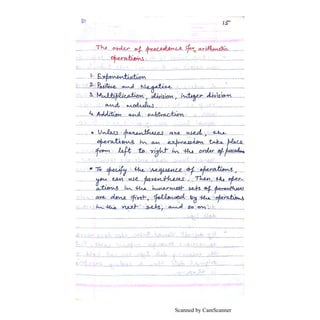 15
The order of precedence for arithmetic
operations.
1. Exponentiation
2. Positive and Negative
3. Multiplication, division, integer division
and modulus.
4. Addition and subtraction
• Unless parentheses are used, the
operations in an expression take place
from left to right in the order of precedence
• To specify the sequence of operations,
you can use parentheses. Then, the oper-
ations in the innermost sets of parentheses
are done first, followed by the operations
in the next sets, and so on.
Scanned by CamScanner